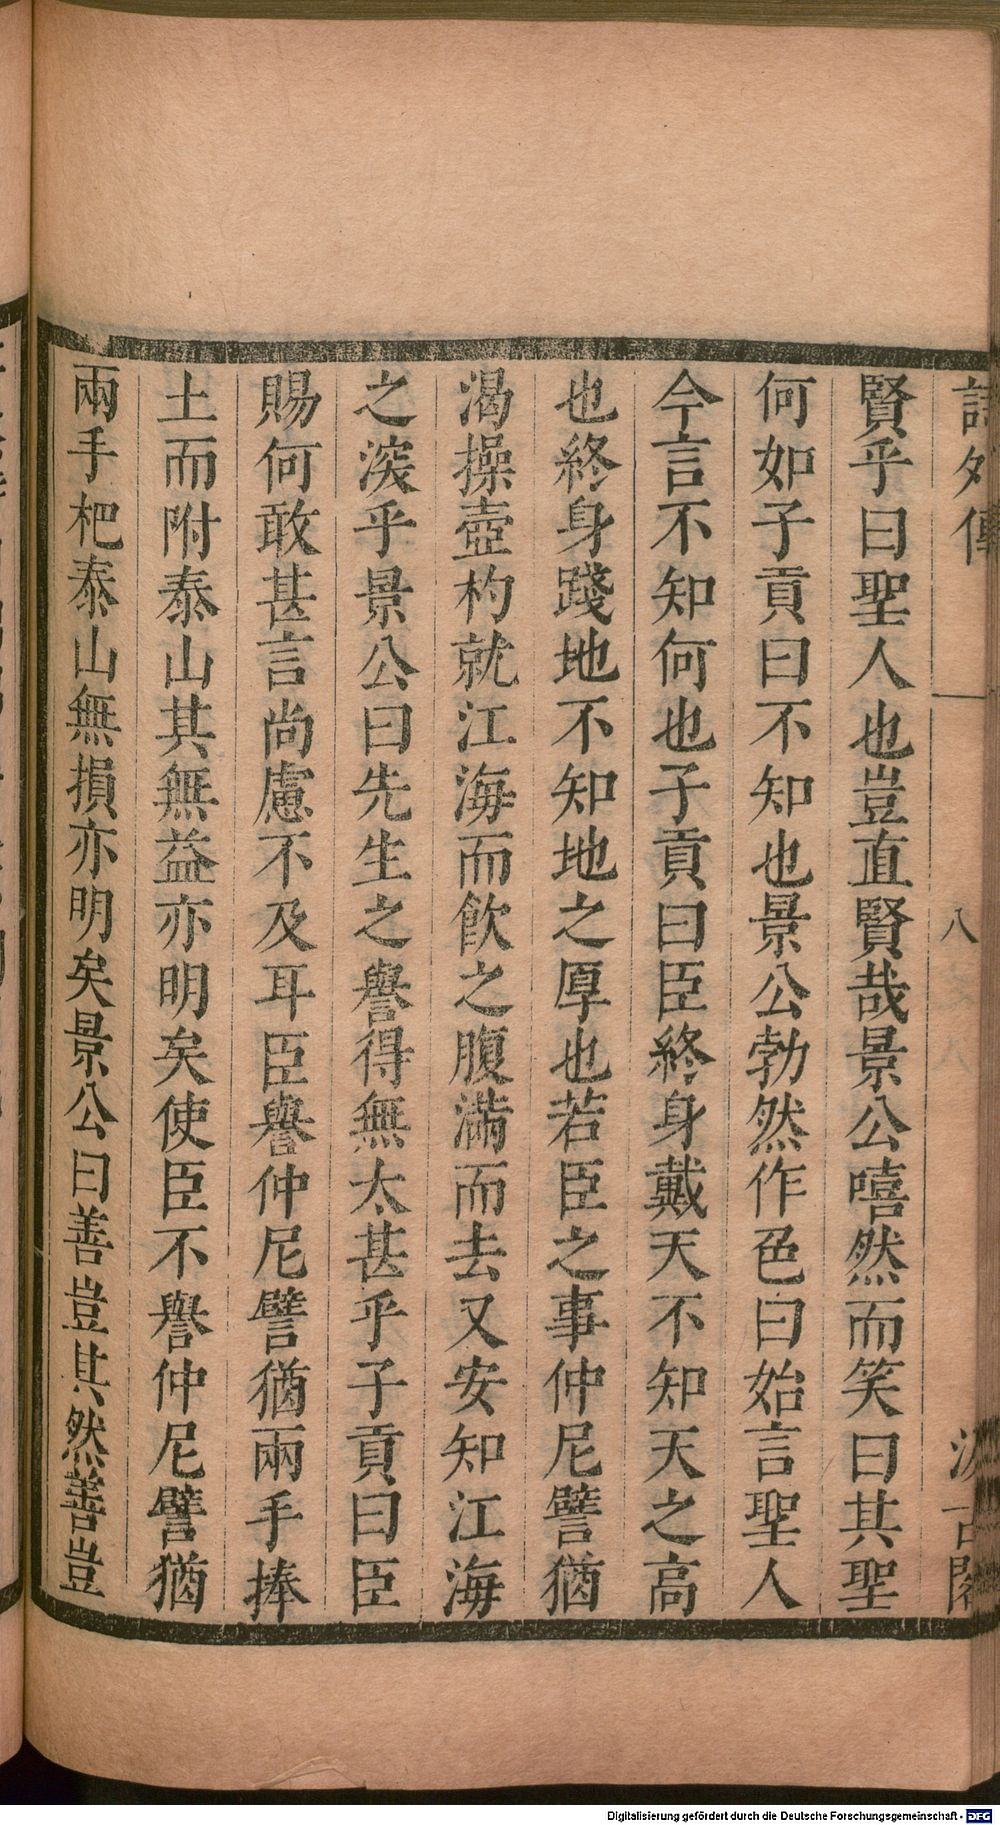 詩外傳 八 汲古閣
賢乎曰聖人也豈直賢哉景公嘻然而笑曰其聖
何如子貢曰不知也景公勃然作色曰始言聖人
今言不知何也子貢曰臣終身戴天不知天之高
也終身踐地不知地之厚也若臣之事仲尼譬猶
渴操壺杓就江海而飲之腹滿而去又安知江海
之深乎景公曰先生之譽得無太甚乎子貢曰臣
賜何敢甚言尚慮不及耳臣譽仲尼譬猶兩手捧
土而附泰山其無益亦明矣使臣不譽仲尼譬猶
兩手杷泰山無損亦明矣景公曰善豈其然善豈
Digitalisierung gefördert durch die Deutsche Forschungsgemeinschaft - DFG